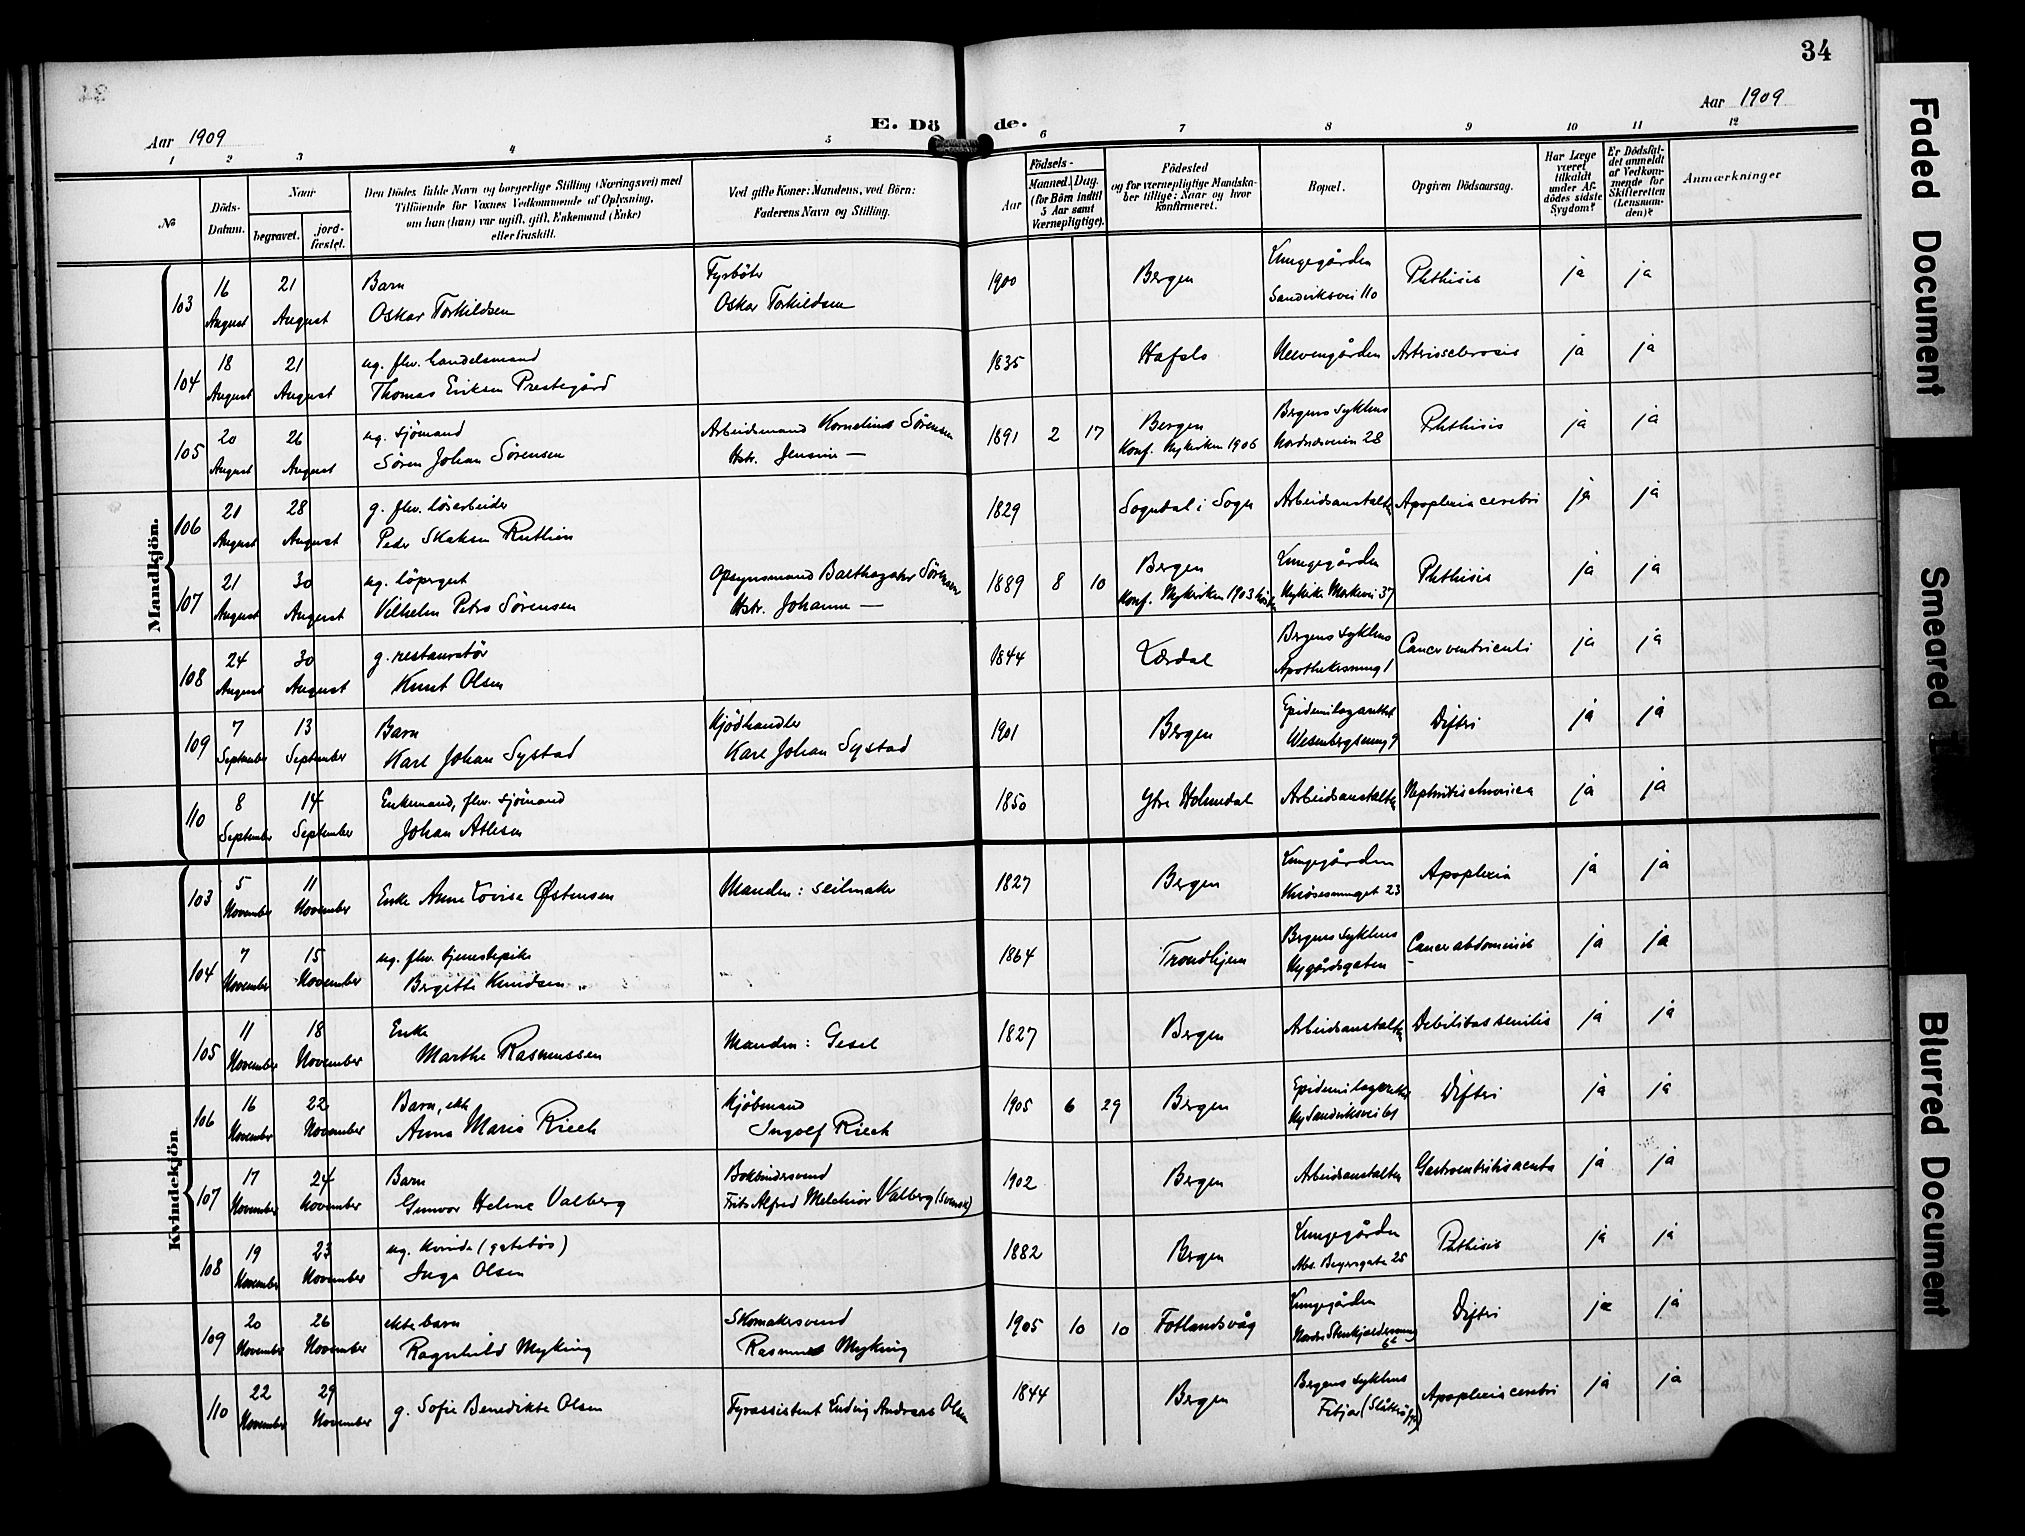 34
Aar 1909
Aar 1909
E. Döde.
1 2 3 4 5 6 7 8 9 10 11 12
No
Döds-Datum.
Naar
begravet.
jord-fæstet.
Den Dödes fulde Navn og borgerlige Stilling (Næringsvei) med
Tilföiende for Voxnes Vedkommende af Oplysning,
om han (hun) var ugift, gift, Enkemand (Enke)
eller fraskilt.
Ved gifte Koner: Mandens, ved Börn:
Faderens Navn og Stilling.
Födsels-
Aar
Maaned. Dag.
(for Börn indtil
5 Aar samt
Værnepligtige).
Födested
og for værnepligtige Mandska-
ber tillige: Naar og hvor
konfirmeret.
Bopæl.
Opgiven Dödsaarsag.
Har Læge
været
tilkaldt
under Af-
dödes sidste
Sygdom?
Er Dödsfal-
det anmeldt
af Vedkom-
mende for
Skifteretten
(Lensman-
den)?
Anmærkninger
Mandkjön.
103 16 August 21 August Barn Oskar Torkildsen Fyrböter Oskar Torkildsen 1900 Bergen Lungegården Sandviksvei 110 Phthisis ja ja
104 18 August 21 August ug. fhv. handelsmand Thomas Eriksen Prestegård 1835 Hafslo Neevengården Arteriosclerosis ja ja
105 20 August 26 August ug. sjömand Sören Johan Sörensen Arbeidsmand Kornelius Sörensen Hstr. Jensine — 1891 2 17 Bergen Konf. Nykirken 1906 Bergens sykehus Nordnesveien 28 Phthisis ja ja
106 21 August 28 August g. fhv. lösarbeider Peder Skaksen Rutlin 1829 Sogndal i Sogn Arbeidsanstalten Apoplexia cerebri ja ja
107 21 August 30 August ug. löpegut Vilhelm Petro Sörensen Opsynsmand Balthazahr Sörensen Hstr. Johanne — 1889 8 10 Bergen Konf. Nykirken 1903 Lungegården Nykirke Markevei 37 Phthisis ja ja
108 24 August 30 August g. restauratör Knut Olsen 1844 Lærdal Bergens sykehus Apothekersmug 1 Cancer ventriculi ja ja
109 7 September 13 September Barn Karl Johan Systad Kjödhandler Karl Johan Systad 1901 Bergen Epidemilazarettet Wesenbergsmug 9 Difteri ja ja
110 8 September 14 September Enkemand, fhv. sjömand Johan Atlesen 1850 Ytre Holmedal Arbeidsanstalten Nephritis chronica ja ja
Kvindekjön
103 5 November 11 November Enke Anne Lovise Østensen Manden: seilmaker 1827 Bergen Lungegården Kroösesmuget 23 Apoplexia ja ja
104 7 November 15 November ug. fhv. tjenestepike Birgitte Knudsen 1864 Trondhjem Bergens sykehus Nygårdsgaten Cancer abdominis ja ja
105 11 November 18 November Enke Marthe Rasmussen Manden: Gesel 1827 Bergen Arbeidsanstalten Debilitas senilis ja ja
106 16 November 22 November Barn, ekte Anna Marie Rieck Kjöbmand Ingolf Rieck 1905 6 29 Bergen Epidemilazarettet Ny Sandviksvei 61 Difteri ja ja
107 17 November 24 November Barn Gunvor Helene Valberg Bokbindersvend Frits Alfred Melchior Valberg (svensk) 1902 Bergen Arbeidsanstalten Gastroentritis acuta ja ja
108 19 November 23 November ug. kvinde (gatetös) Inga Olsen 1882 Bergen Lungegården Abs. Beyersgate 25 Phthisis ja ja
109 20 November 26 November ekte barn Ragnhild Myking Skomakersvend Rasmus Myking 1905 10 10 Fotlandsvåg Lungegården Nordre Stenkjeldersmug Difteri ja ja
110 22 November 29 November g. Sofie Benedikte Olsen Fyrassistent Ludvig Andreas Olsen 1844 Bergen Bergens sykehus Fitjar Apoplexia cerebri ja ja
Faded Document
Smeared
Blurred Document